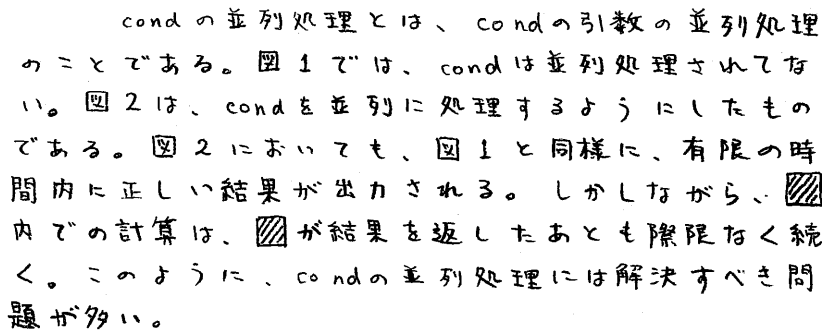 condの並列処理とは、condの引数の並列処理
のことである。図1では、condは並列処理されてな
い。図2は、condを並列に処理するようにしたもの
である。図2においても、図1と同様に、有限の時
間内に正しい結果が出力される。しかしながら、▨
内での計算は、▨が結果を返したあとも際限なく続
く。このように、condの並列処理には解決すべき問
題が多い。